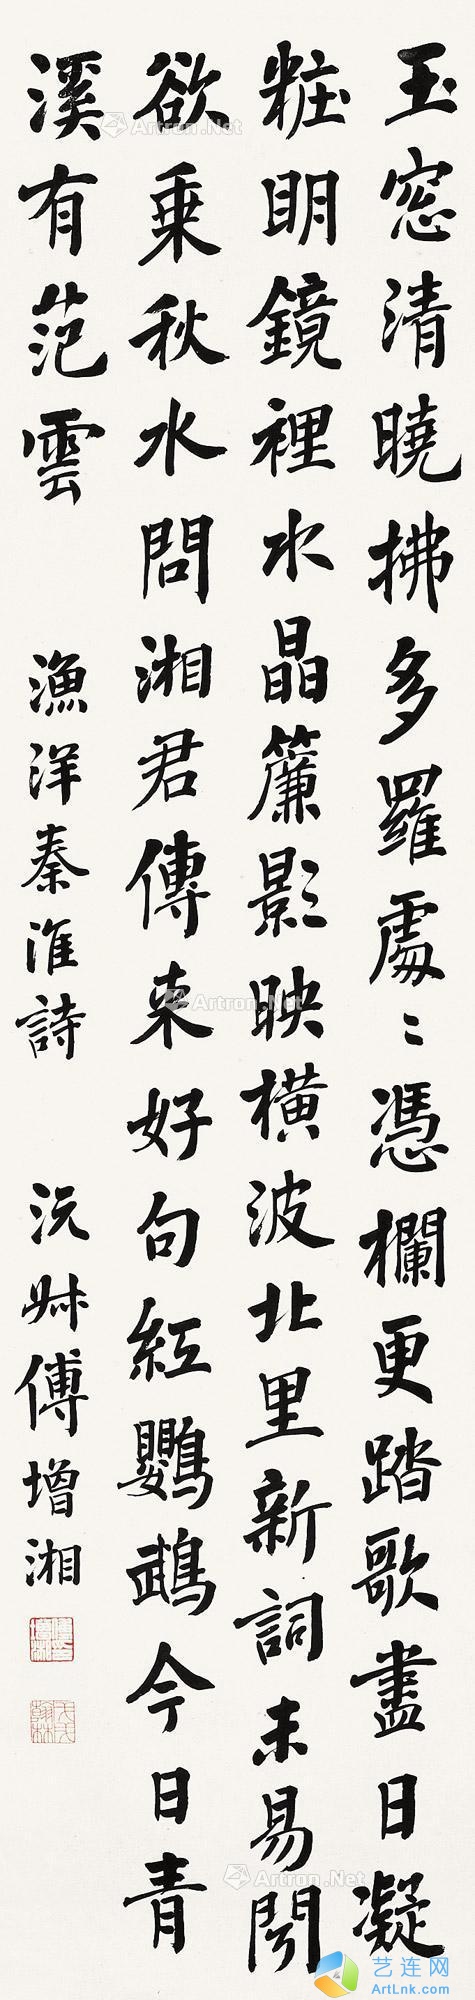 玉窓清曉拂多羅處〻憑欄更踏歌盡日凝
粧明鏡裡水晶簾影映橫波北里新詞未易聞
欲乗秋水問湘君傳来好句紅鸚鵡今日青
溪有范雲
漁洋秦淮詩
沅叔傅增湘
Artron.Net
Artron.Net
Artron.Net
艺连网
ArtLnk.com